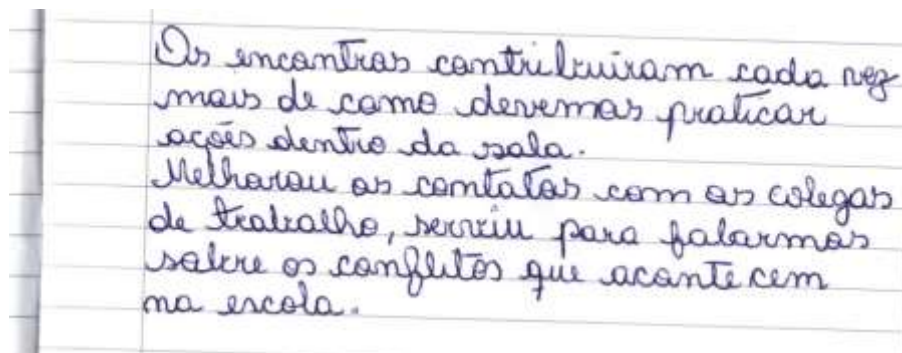 Os encontros contribuiram cada vez
mais de como devemos praticar
ações dentro da sala.
Melhorou os contatos com os colegas
de trabalho, serviu para falarmos
sobre os conflitos que acontecem
na escola.